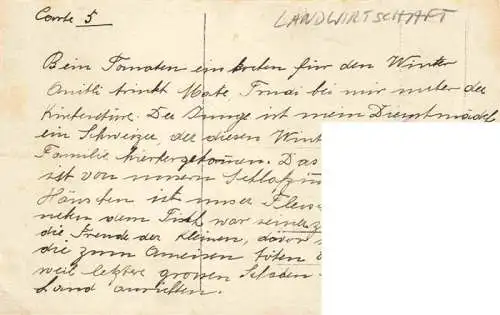 Carte 5
LANDWIRTSCHAFT
Beim Tomaten einkreten für den Winter
Anitli trinkt Mate, Trudi bei mir unter der
Küchentüre. Der Junge ist mein Dienstmädel
ein Schweizer, der diesen Wint
Familie hiergekommen. Das
ist von unserm Schlafzim
Häuschen ist unser Fleisc
neben dem Tisch war seiner
die Freude der Kleinen, davor
die zum Ameisen töten
weil letztere grossen Schaden
Land anrichten.